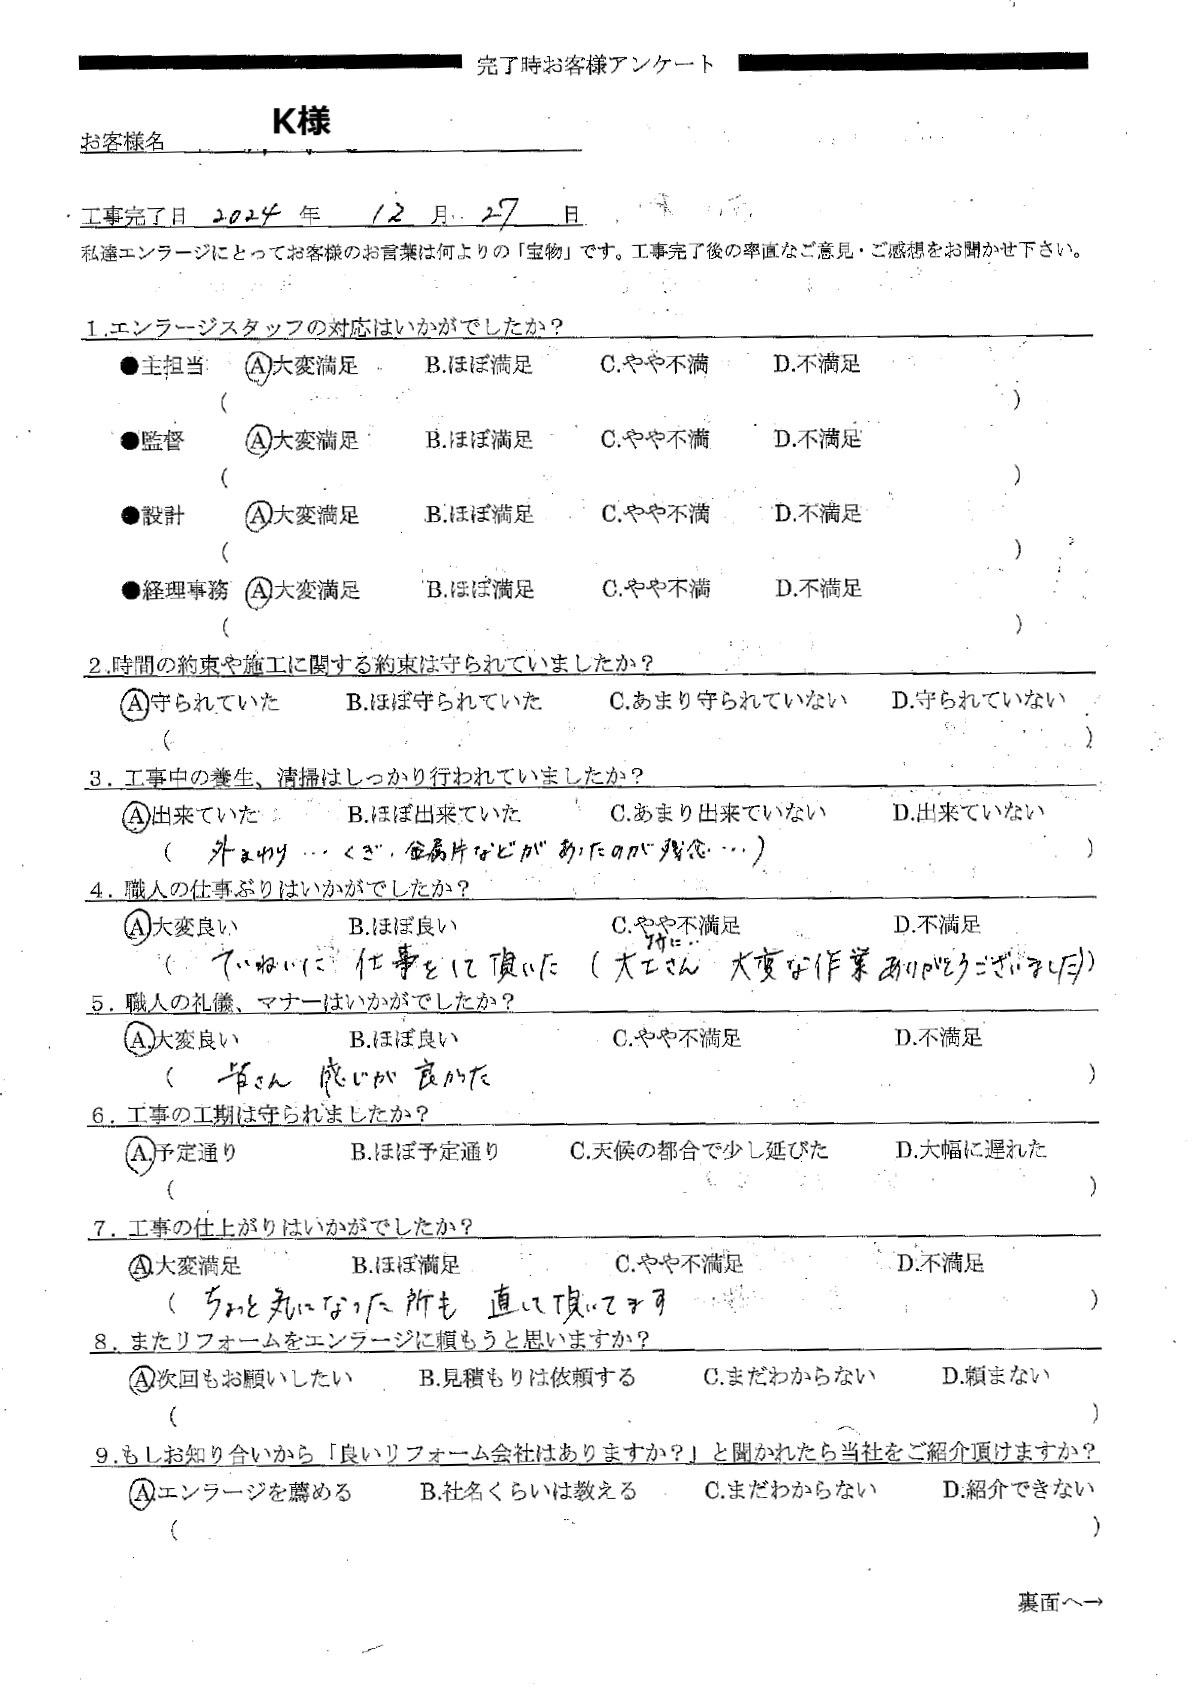 完了時お客様アンケート
K様
お客様名
工事完了日 2024 年 12 月 27 日
私達エンラージにとってお客様のお言葉は何よりの「宝物」です。工事完了後の率直なご意見・ご感想をお聞かせ下さい。
1.エンラージスタッフの対応はいかがでしたか？
●主担当 A.大変満足 B.ほぼ満足 C.やや不満 D.不満足
( )
●監督 A.大変満足 B.ほぼ満足 C.やや不満 D.不満足
( )
●設計 A.大変満足 B.ほぼ満足 C.やや不満 D.不満足
( )
●経理事務 A.大変満足 B.ほぼ満足 C.やや不満 D.不満足
( )
2.時間の約束や施工に関する約束は守られていましたか？
A.守られていた B.ほぼ守られていた C.あまり守られていない D.守られていない
( )
3. 工事中の養生、清掃はしっかり行われていましたか？
A.出来ていた B.ほぼ出来ていた C.あまり出来ていない D.出来ていない
( 外まわり … くぎ、金属片などがあったのが残念…) )
4. 職人の仕事ぶりはいかがでしたか？
A.大変良い B.ほぼ良い C.やや不満足 D.不満足
特に‥
( ていねいに 仕事をして頂いた (大工さん 大変な作業ありがとうございました))
5. 職人の礼儀、マナーはいかがでしたか？
A.大変良い B.ほぼ良い C.やや不満足 D.不満足
( 皆さん 感じが 良かった )
6. 工事の工期は守られましたか？
A.予定通り B.ほぼ予定通り C.天候の都合で少し延びた D.大幅に遅れた
( )
7. 工事の仕上がりはいかがでしたか？
A.大変満足 B.ほぼ満足 C.やや不満足 D.不満足
( ちょっと気になった所も 直して頂いてます )
8. またリフォームをエンラージに頼もうと思いますか？
A.次回もお願いしたい B.見積もりは依頼する C.まだわからない D.頼まない
( )
9.もしお知り合いから「良いリフォーム会社はありますか？」と聞かれたら当社をご紹介頂けますか？
A.エンラージを薦める B.社名くらいは教える C.まだわからない D.紹介できない
( )
裏面へ→